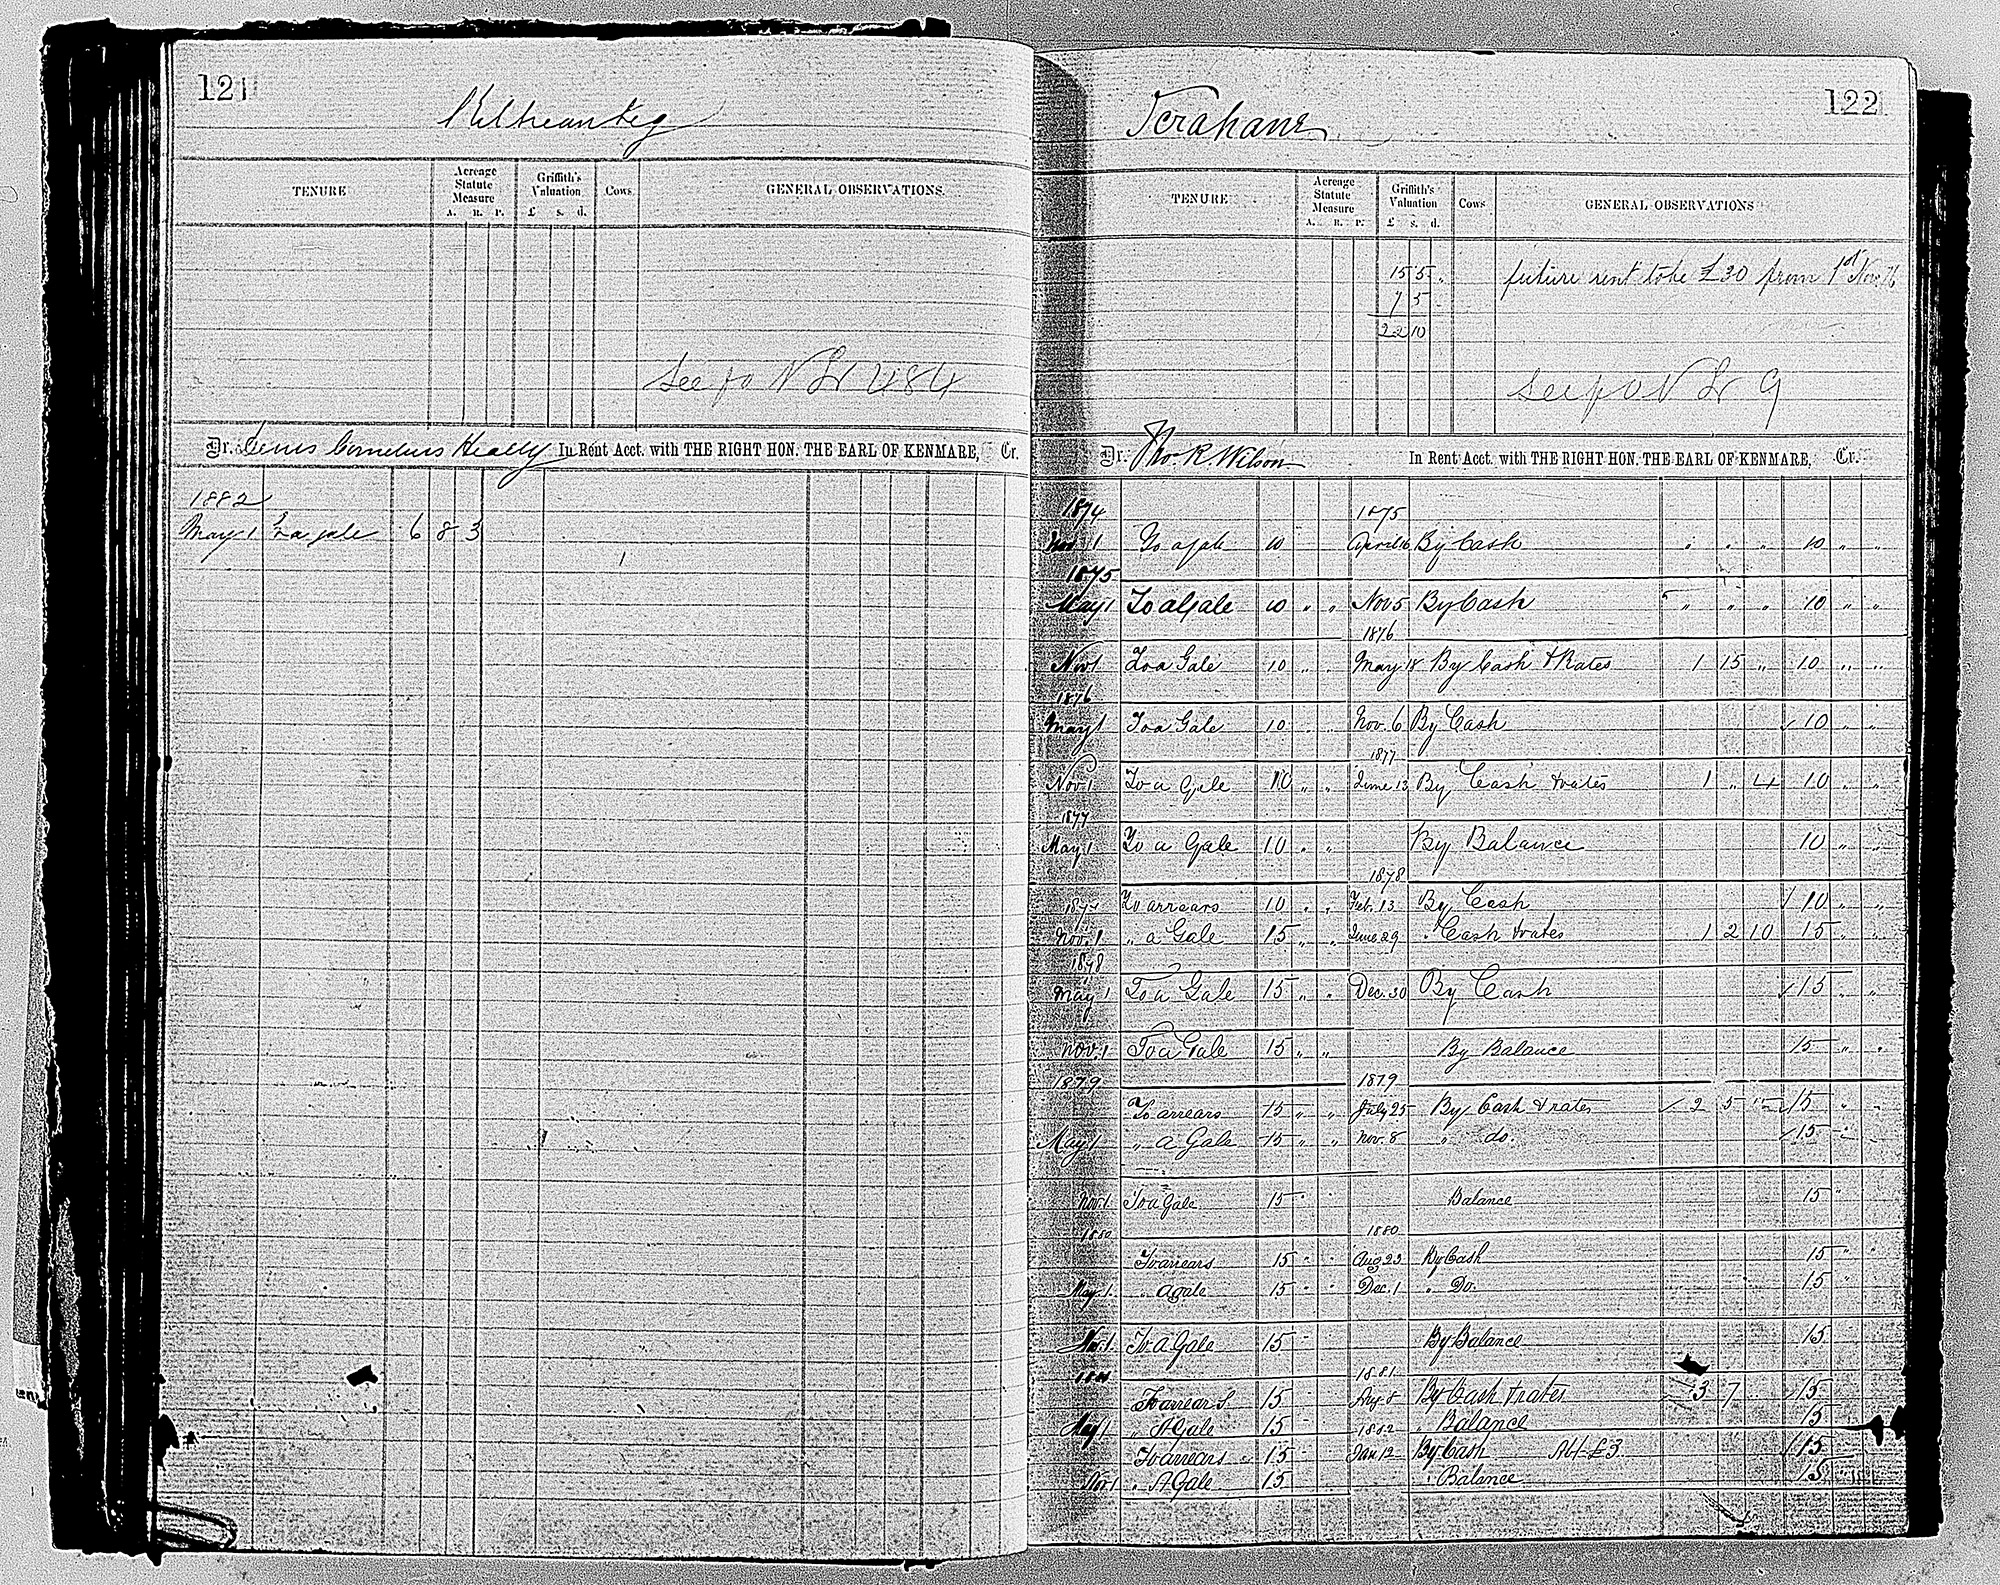 121
TENURE Acreage Statute Measure A. R. P. Griffith's Valuation £ s. d. Cows GENERAL OBSERVATIONS.
See fo N Lr 484
Dr. Denis Cornelius Healy In Rent Acct. with THE RIGHT HON. THE EARL OF KENMARE, Cr.
1882
May 1 To a gale 6 8 3
122
Terahane
TENURE Acreage Statute Measure A. R. P. Griffith's Valuation £ s. d. Cows GENERAL OBSERVATIONS
15 5 . future rent to be £30 from 1st Nov. 76
7 5 .
22 10
See fo N Lr 9
Dr. Tho. R. Wilson In Rent Acct. with THE RIGHT HON. THE EARL OF KENMARE, Cr.
1874 1875
Nov. 1 To a gale 10 April 16 By Cash " " 10 " "
1875
May 1 To a Gale 10 " " Nov 5 By Cash " " " 10 " "
1876
Nov 1 To a Gale 10 " " May 18 By Cash & Rates 1 15 " 10 " "
1876
May 1 To a Gale 10 " " Nov. 6 By Cash 10 " "
1877
Nov. 1 To a Gale 10 " " June 13 By Cash & rates 1 " 4 10 " "
1877
May 1 To a Gale 10 " " By Balance 10 " "
1878
1877 To arrears 10 " " Feb. 13 By Cash 10 " "
Nov. 1 " a Gale 15 " " June 29 " Cash & rates 1 2 10 15 " "
1878
May 1 To a Gale 15 " " Dec. 30 By Cash 15 " "
Nov. 1 To a Gale 15 " " By Balance 15 " "
1879 1879
To arrears 15 " " July 25 By Cash & rates 2 5 15 " "
May 1 " a Gale 15 " " Nov. 8 " do. 15 " "
Nov. 1 To a Gale 15 " " Balance 15 "
1880 1880
To arrears 15 " " Aug 23 By Cash 15 " "
May 1. " a gale 15 " " Dec. 1 " Do. 15 " "
Nov. 1 To A Gale 15 " By Balance 15 "
1881 1881
To arrears 15 By Cash & rates 3 7 15
May 1 " A Gale 15 1882 " Balance 15
To arrears 15 Jan 12 By Cash £3 15
Nov 1 " A Gale 15 " Balance 15